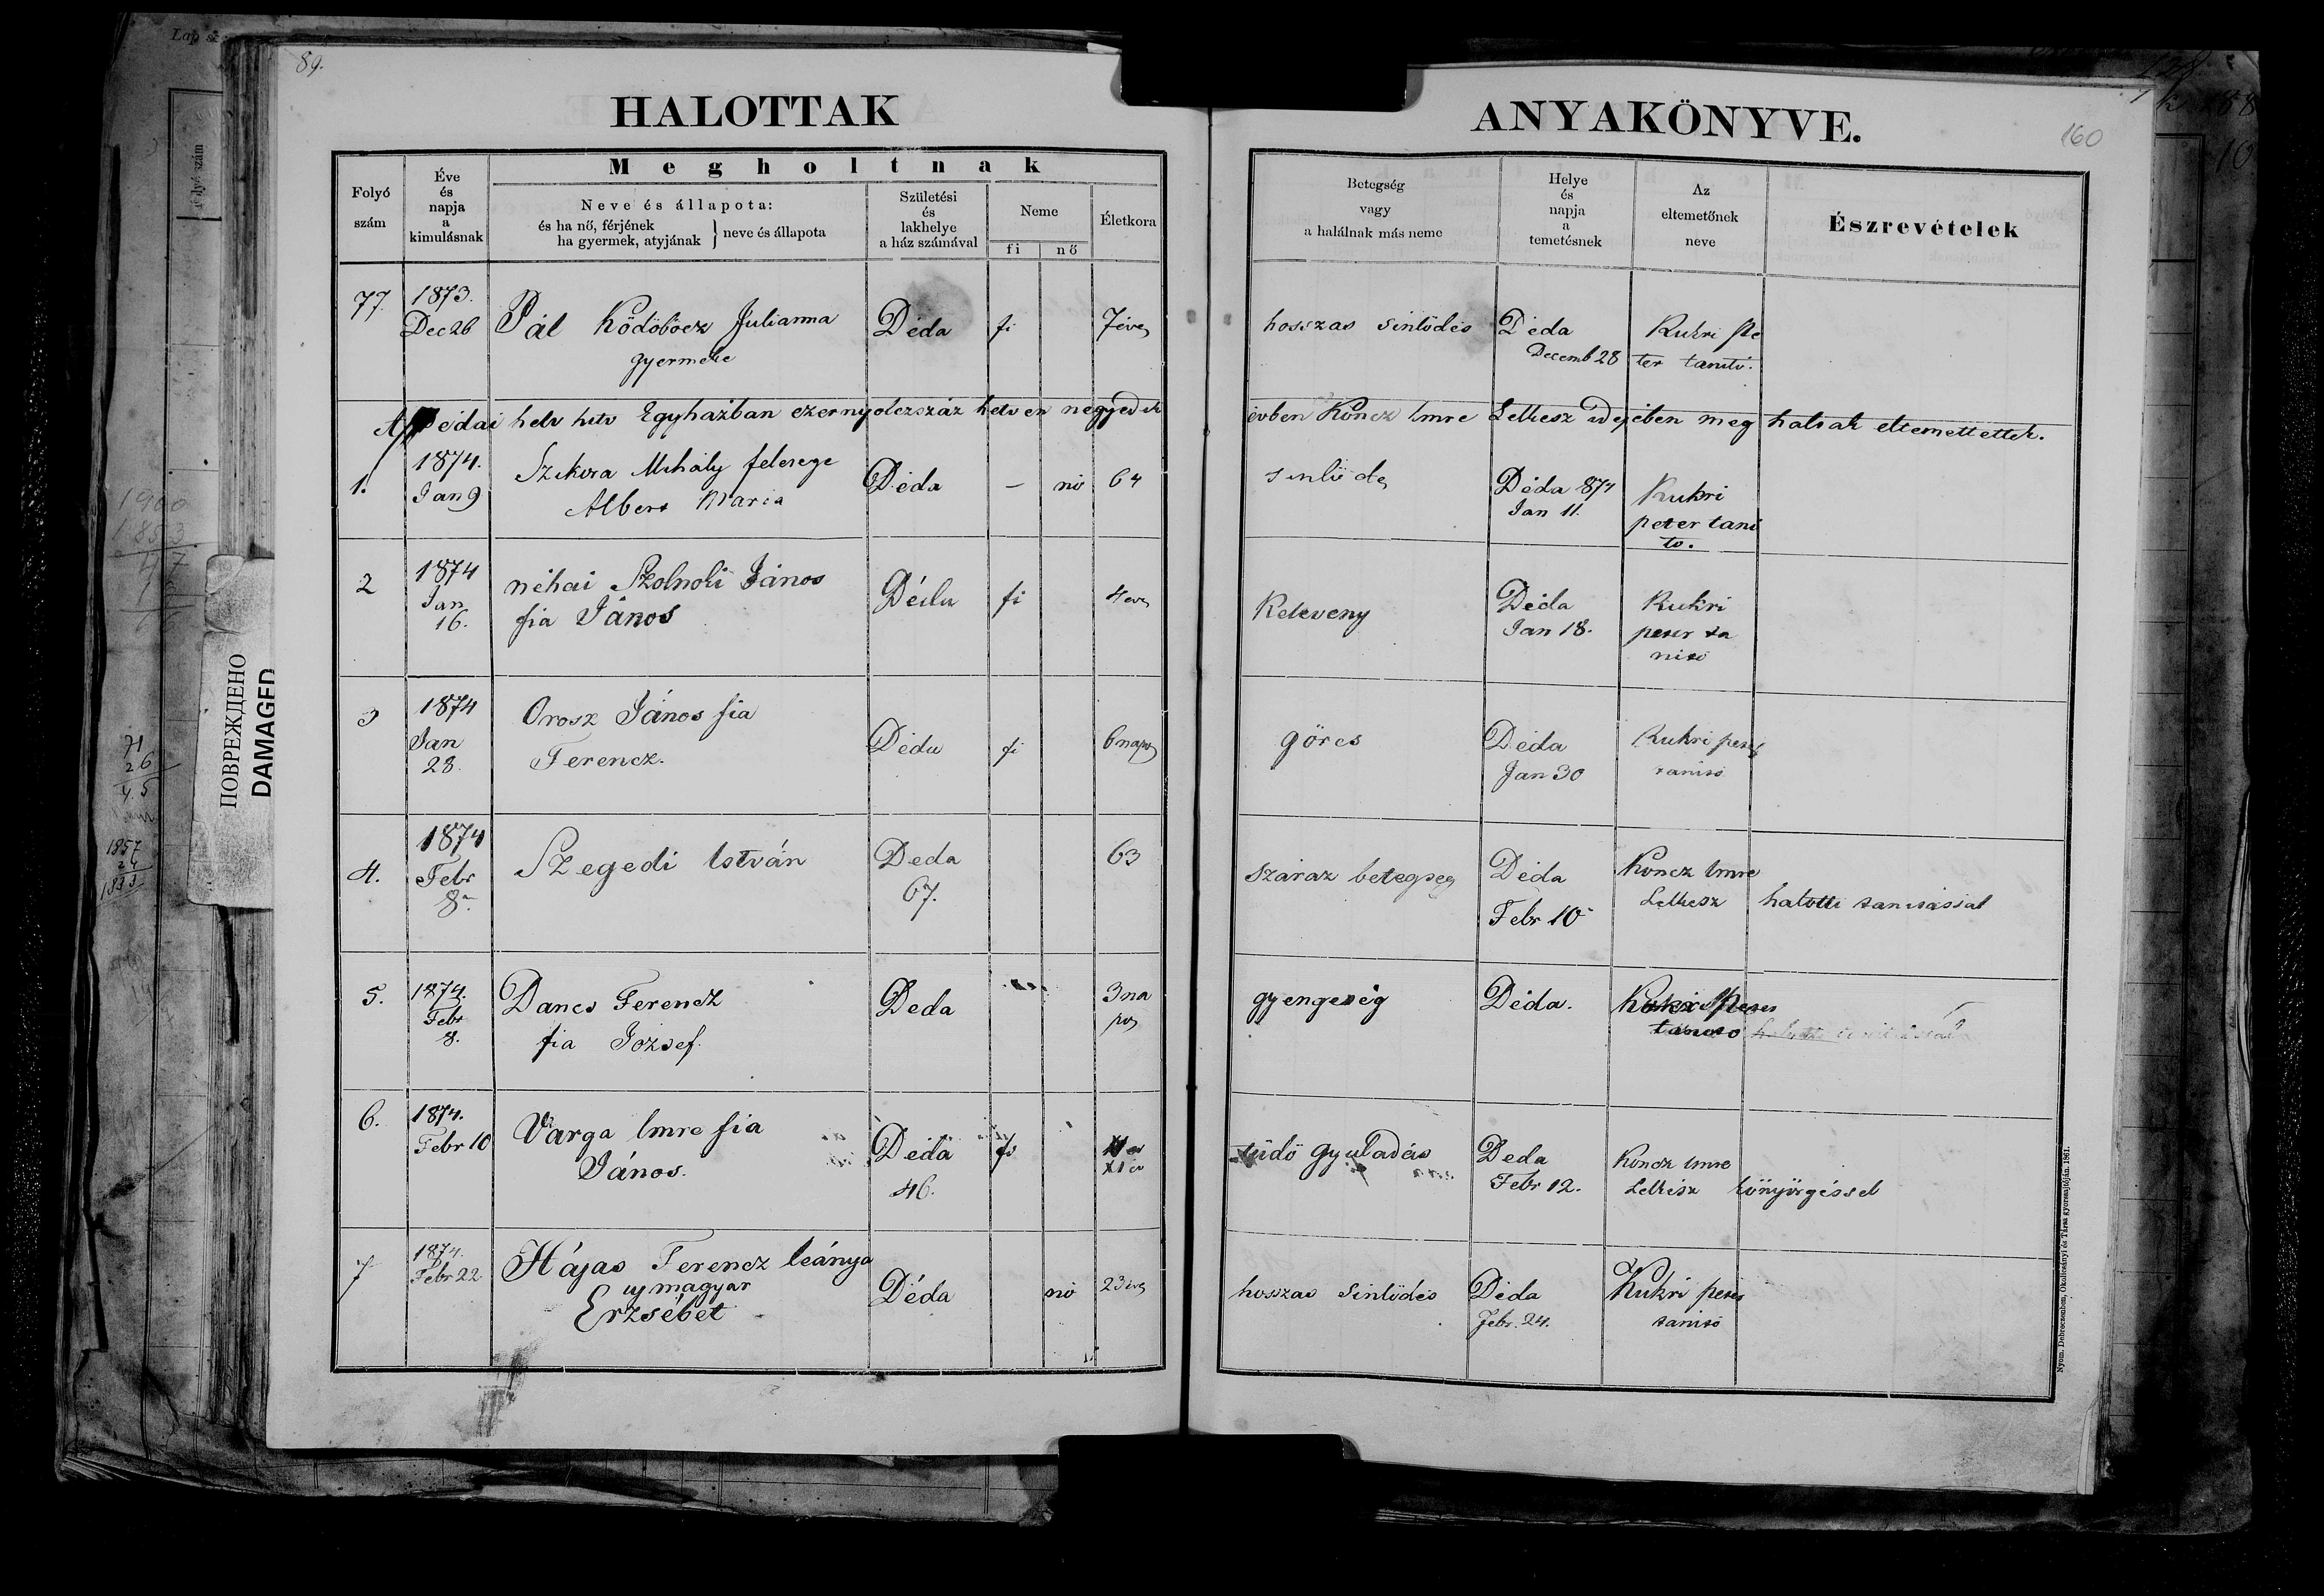 89.
HALOTTAK
ANYAKÖNYVE.
160
Folyó
szám
Éve
és
napja
a
kimulásnak
Megholtnak
Neve és állapota:
és ha nő, férjének
ha gyermek, atyjának } neve és állapota
Születési
és
lakhelye
a ház számával
Neme
fi nő
Életkora
Betegség
vagy
a halálnak más neme
Helye
és
napja
a
temetésnek
Az
eltemetőnek
neve
Észrevételek
77.
1873.
Dec 26
Pál Ködöböcz Julianna
gyermeke
Déda
fi
7 éves
hosszas sinlődés
Déda
Decemb 28
Kukri Pé
ter tanitó.
A Dédai helv hitv Egyházban ezernyolczszáz hetven negyedik évben Koncz Imre Lelkesz idejében meg haltak eltemettettek.
1.
1874.
Jan 9
Szikora Mihály felesege
Albert Maria
Déda
–
nö
64
sinlődes
Déda 874
Jan 11.
Kukri
peter tani
to.
2
1874
Jan
16.
néhai Szolnoki János
fia János
Déda
fi
4 eves
Keleveny
Déda
Jan 18.
Kukri
peter ta
nito
3
1874
Jan
28.
Orosz János fia
Ferencz.
Déda
fi
6 napos
görcs
Déda
Jan 30
Kukri peter
tanito
4.
1874
Febr
8
Szegedi István
Deda
67.
63
száraz betegseg
Déda
Febr 10
Koncz Imre
Lelkesz
halotti tanitással
5.
1874.
Febr
8.
Dancs Ferencz
fia Jozsef.
Deda
3 na
pos
gyengeség
Déda.
Kukri Peter
tanito
6.
1874.
Febr 10
Varga Imre fia
János.
Déda
46.
fi
XI év
tüdö gyuladás
Deda
Febr 12.
Koncz Imre
Lelkész
könyörgéssel
7
1874.
Febr 22
Hájas Ferencz leánya
uj magyar
Erzsébet
Déda
nö
23 éves
hosszas sinlödés
Déda
Febr. 24.
Kukri peter
tanito
Nyom. Debreczenben, Okolicsányi és Társa gyorssajtóján. 1861.
ПОВРЕЖДЕНО
DAMAGED